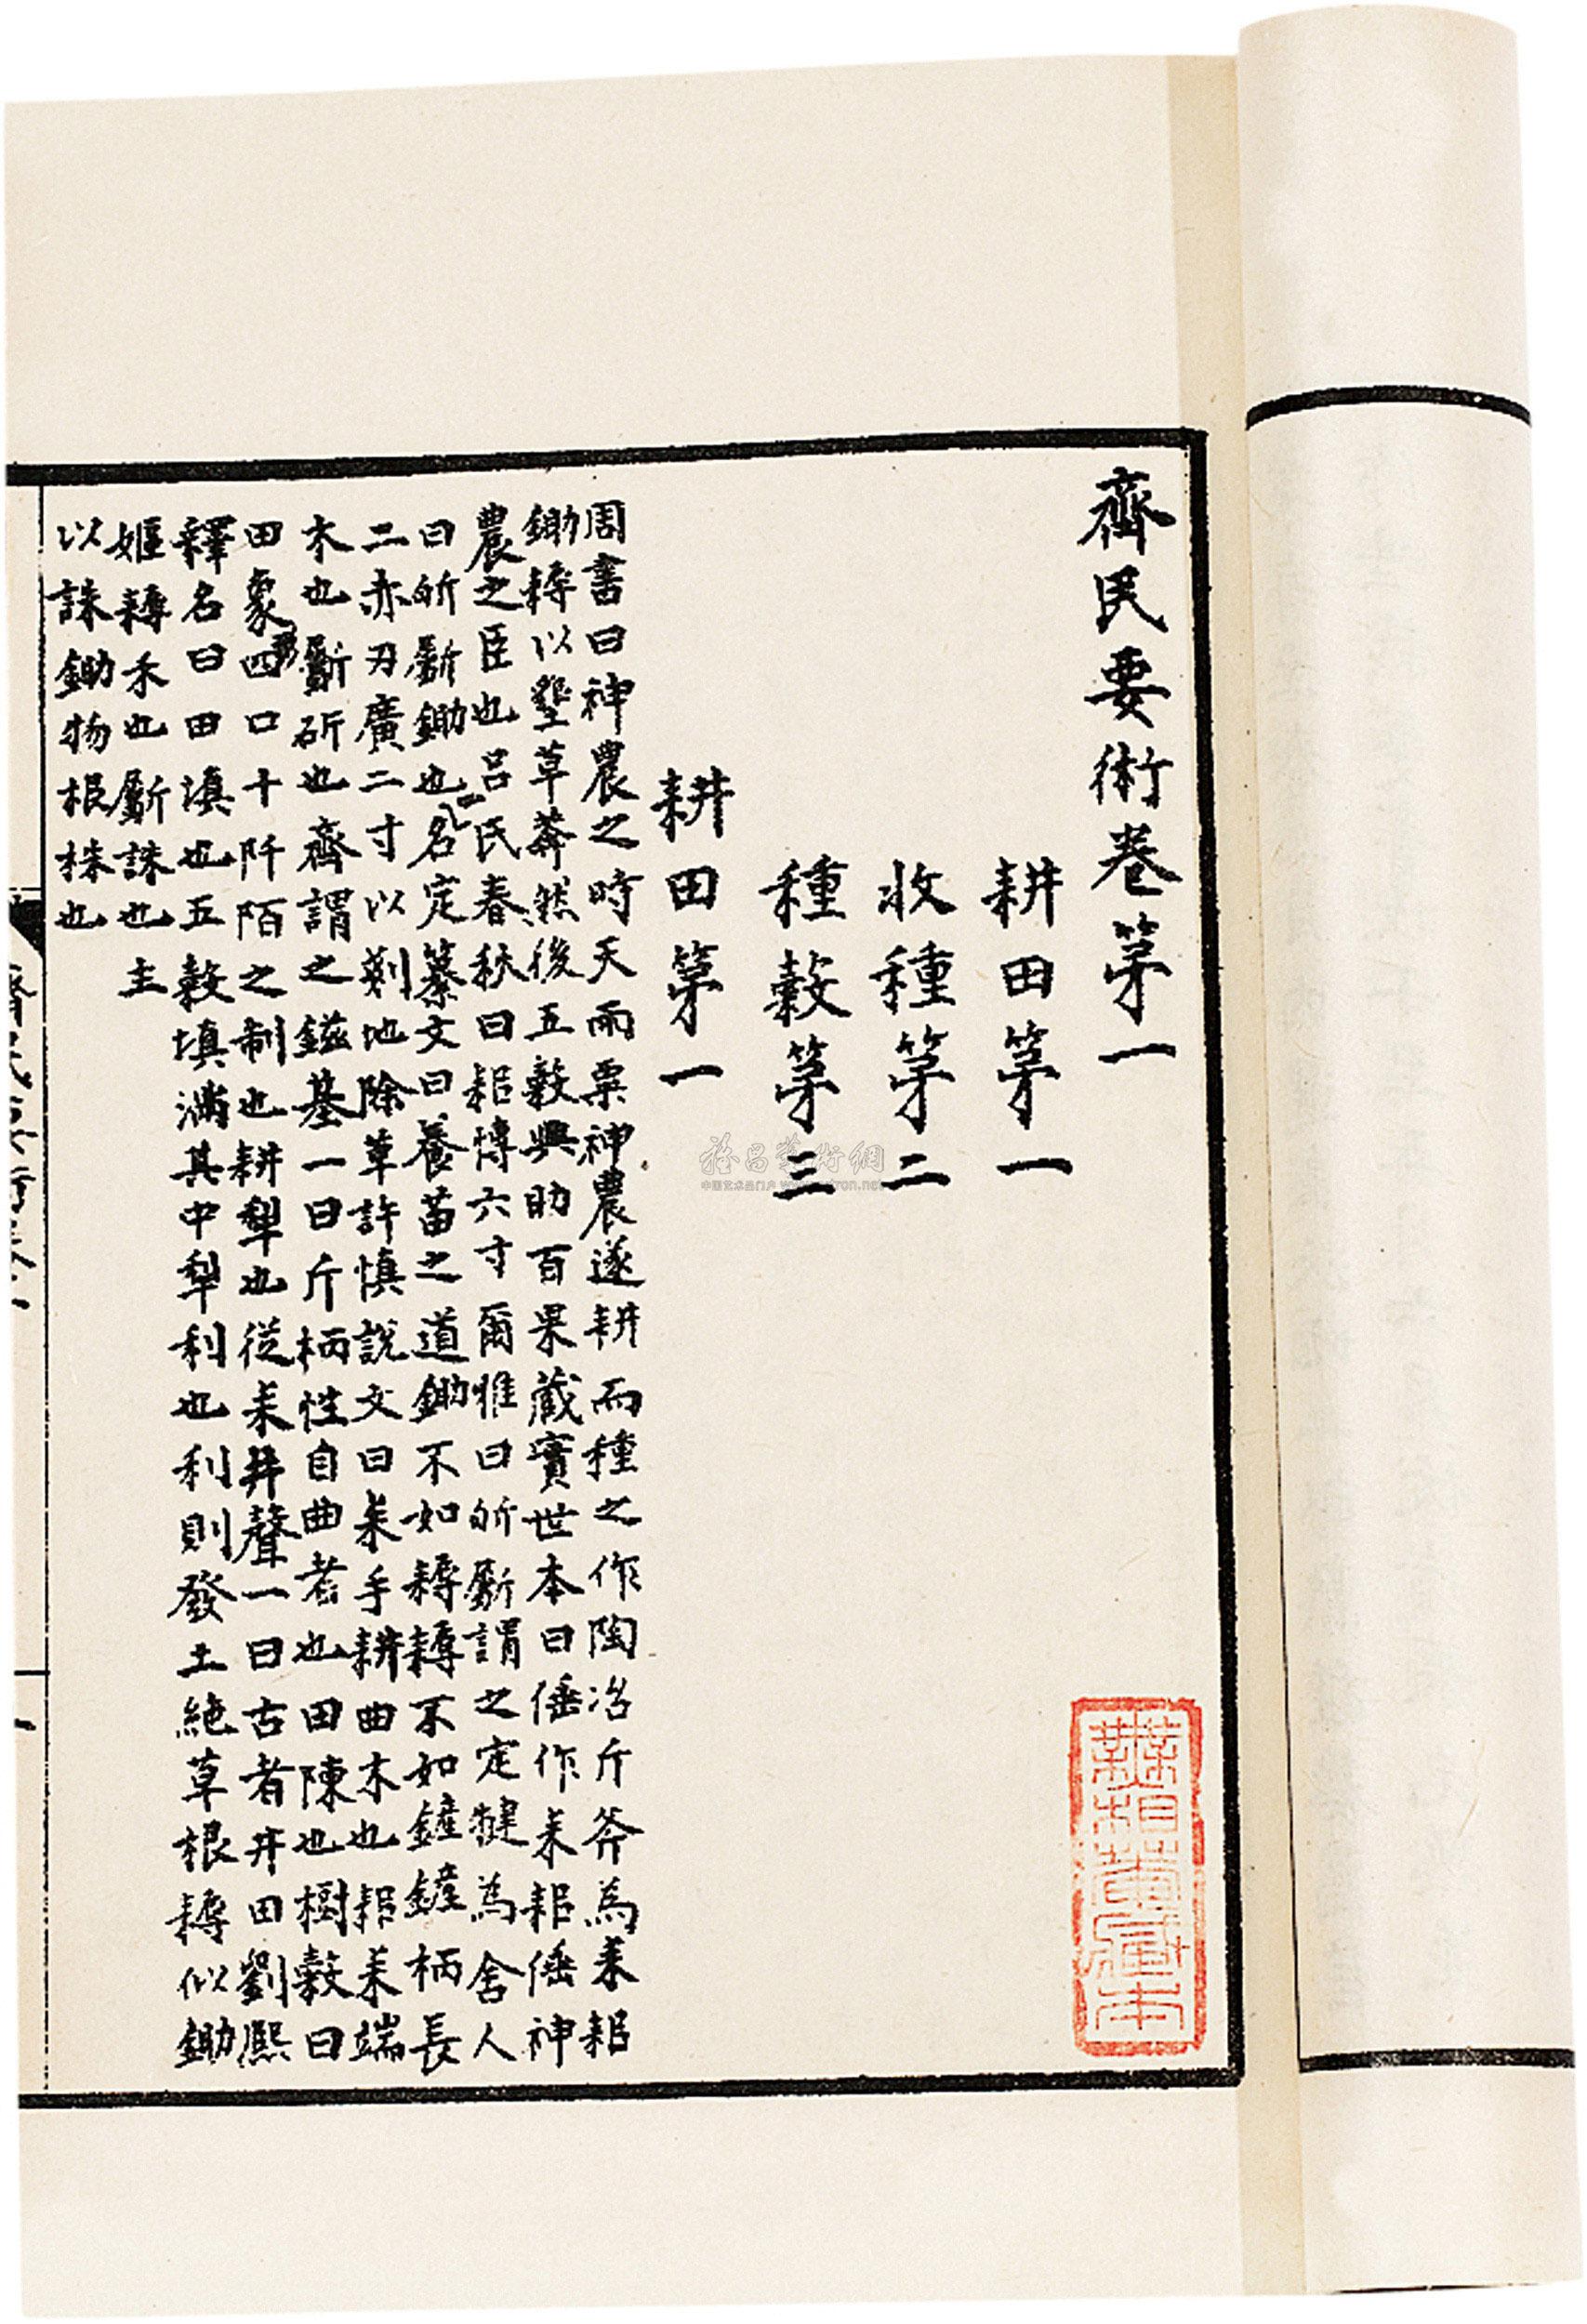 齊民要術卷第一
耕田第一
收種第二
種穀第三
耕田第一
周書曰神農之時天雨粟神農遂耕而種之作陶冶斤斧為耒耜
鋤耨以墾草莽然後五穀興助百果蔵實世本曰倕作耒耜倕神
農之臣也呂氏春秋曰耜博六寸爾雅曰斪斸謂之定犍為舍人
曰斪斸鋤也一名定纂文曰養苗之道鋤不如耨耨不如鏟鏟柄長
二赤刃廣二寸以剗地除草許慎說文曰耒手耕曲木也耜耒端
木也斸斫也齊謂之鎡基一曰斤柄性自曲者也田陳也樹穀曰
田象四口十阡陌之制也耕犂也從耒井聲一曰古者井田劉熙
釋名曰田填也五穀填滿其中犂利也利則發土絶草根耨似鋤
嫗耨禾也斸誅也主
以誅鋤物根株也
齊民要術卷一
一
雅昌藝術網